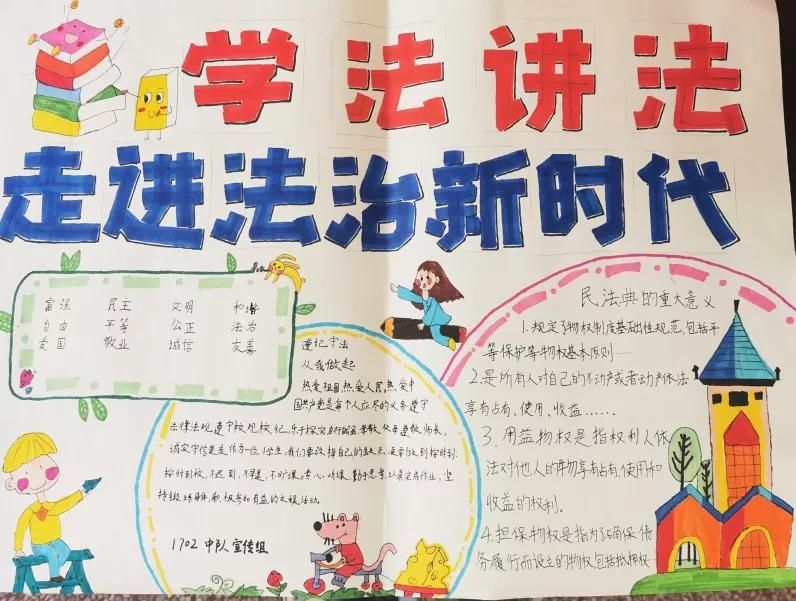 学法讲法
走进法治新时代
富强 民主 文明 和谐
自由 平等 公正 法治
爱国 敬业 诚信 友善
遵纪守法
从我做起
热爱祖国,热爱人民,热爱中
国共产党是每个人应尽的义务遵守
法律法规,遵守校规校纪,乐于探究,
孝敬父母尊敬师长,
诚实守信是作为一位小学生,我们要改掉自己的缺点,要做到按时到
按时到校,不迟到,不早退,不旷课。专心听课,勤于思考,认真完成作业。坚
持锻炼身体,积极参加有益的文娱活动。
1702中队宣传组
民法典的重大意义
1.规定了物权制度基础性规范,包括平
等保护等物权基本原则……
2.是所有人对自己的不动产或者动产依法
享有占有、使用、收益……
3、用益物权是指权利人依
法对他人的物享有占有、使用和
收益的权利。
4.担保物权是指为了确保债
务履行而设立的物权包括抵押权…